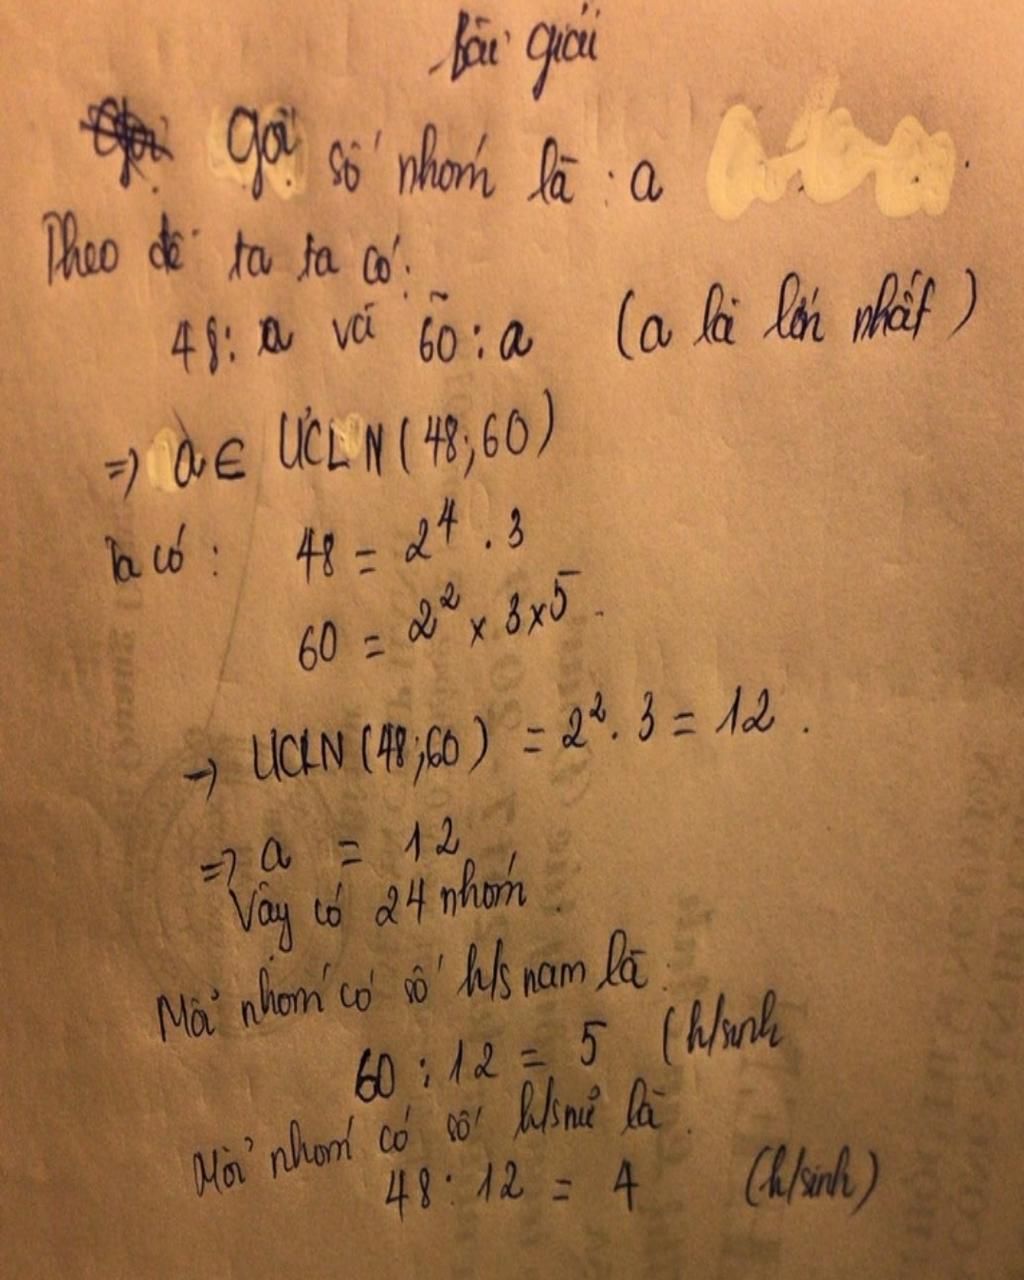 Bài giải
Gọi số nhóm là : a
Theo đề ta ta có:
48 : a và 60 : a (a là lớn nhất)
=> a ∈ ƯCLN (48;60)
Ta có : 48 = 2⁴ . 3
60 = 2² x 3 x 5
→ UCLN (48;60) = 2² . 3 = 12 .
=> a = 12
Vậy có 24 nhóm .
Mỗi nhóm có số h/s nam là :
60 : 12 = 5 (h/sinh
Mỗi nhóm có số h/s nữ là
48 : 12 = 4 (h/sinh)